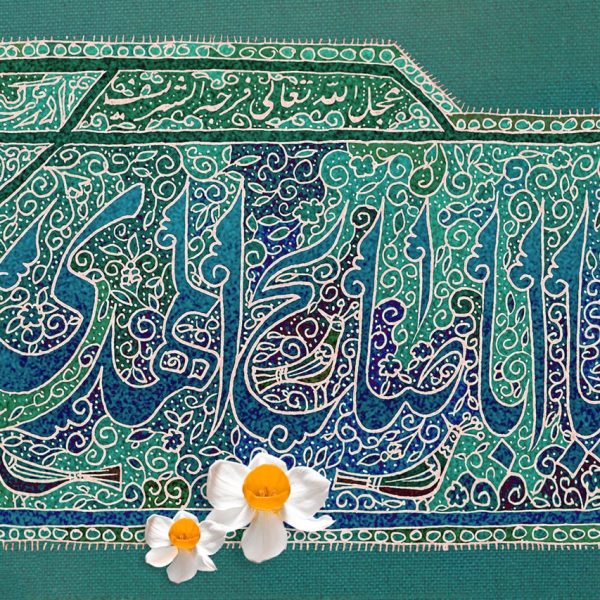 عجل الله تعالی فرجه الشریف
یا اباصالح المهدی